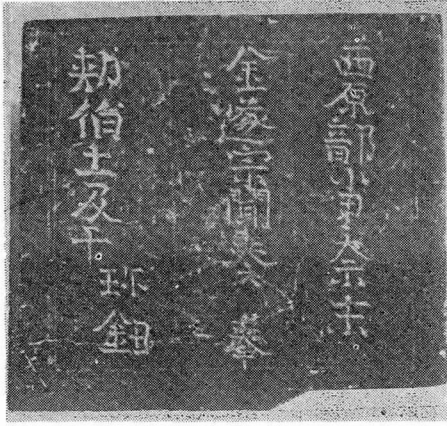 西原部小尹奈末
金遂宗聞奏奉
勅伯士及干珎鈕